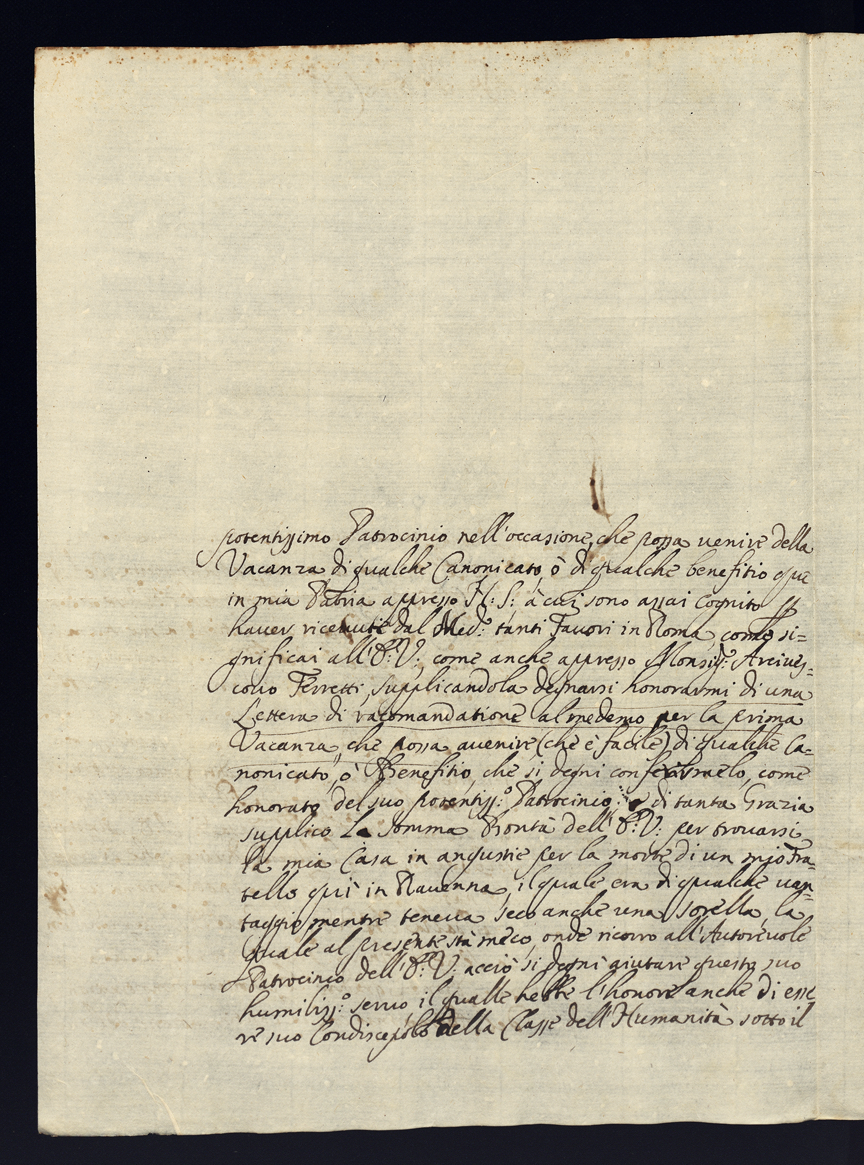 potentissimo Patrocinio nell'occasione, che possa venire della
Vacanza di qualche Canonicato, ò di qualche benefitio qui
in mia Patria appresso N: S: à cui sono assai Cognito p
haver ricevuti dal Med:º tanti favori in Roma, come si=
gnificai all'P: V:, come anche appresso Monsig:r Arcives=
covo Ferretti, supplicandola degnarsi honorarmi di una
Lettera di racomandatione al medemo per la prima
Vacanza, che possa avenire (che è facile) di qualche Ca=
nonicato, ò Benefitio, che si degni conferirmelo, come
honorato del suo potentiss:º Patrocinio; e di tanta Grazia
supplico La somma Bontà dell'P: V: per trovarsi
la mia Casa in angustie per la morte di un mio Fra=
tello quì in Ravenna, il quale era di qualche van=
taggio, mentre teneva seco anche una sorella, la
quale al presente stà meco, onde ricorro all'Autorevole
Patrocinio dell'P: V: acciò si degni aiutare questo suo
humiliss:º servo, il qualle hebbe l'honore anche di esse
re suo Condiscepolo della Classe dell'Humanità sotto il